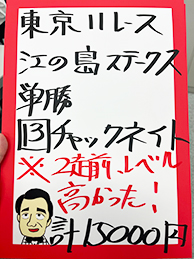 東京11レース
江の島ステークス
単勝
13チャックネイト
※2走前、レベル
高かった!
計15000円